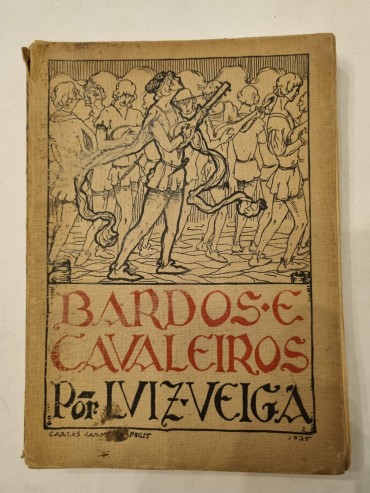 BARDOS·E
CAVALEIROS
Pōr LVIZ·VEIGA
CARLOS FECIT 1925